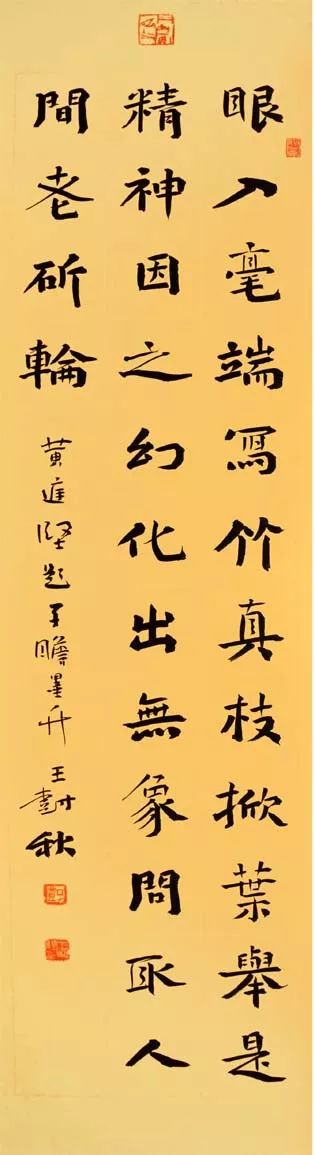 眼入毫端寫竹真枝掀葉舉是
精神因之幻化出無象問取人
間老斫輪
黃庭堅題子瞻墨竹 王尌秋